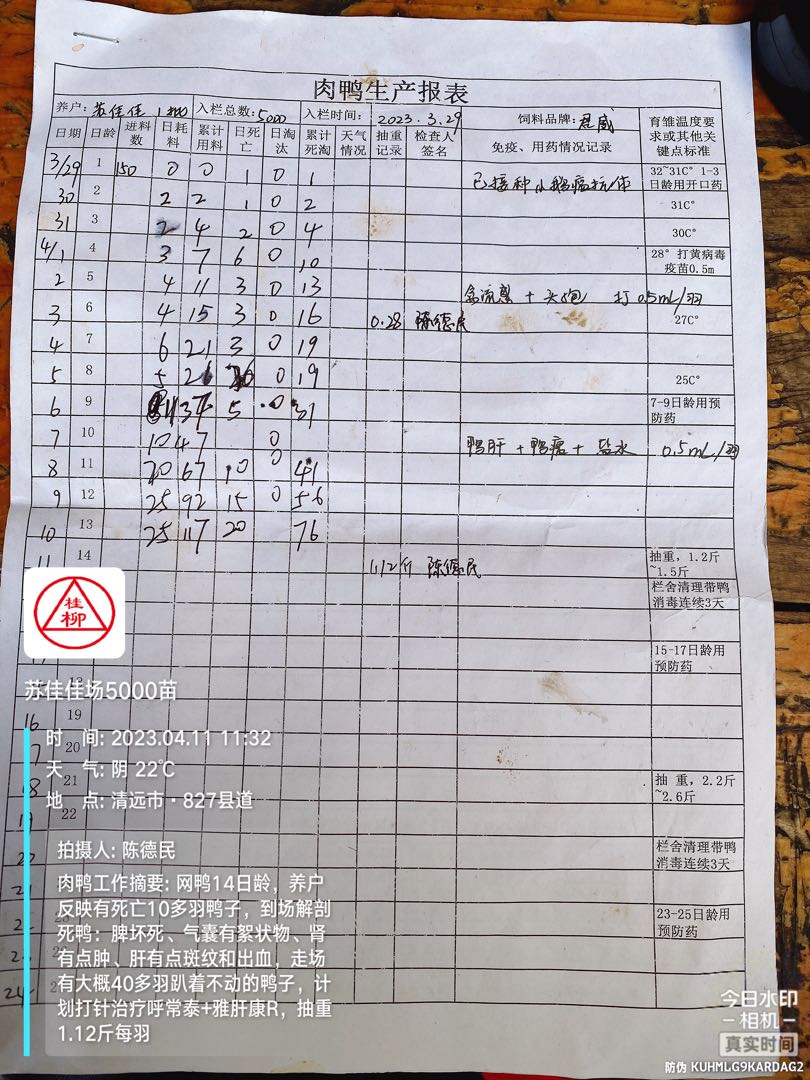 肉鸭生产报表
养户: 苏佳佳 入栏总数: 5000 入栏时间: 2023.3.29 饲料品牌: 君威 育雏温度要求或其他关键点标准
日期 日龄 进料数 日耗料 累计用料 日死亡 日淘汰 累计死淘 天气情况 抽重记录 检查人签名 免疫、用药情况记录
3/29 1 150 0 0 1 0 1 已接种小鹅瘟抗体 32~31C° 1-3日龄用开口药
30 2 2 2 1 0 2 31C°
31 3 2 4 2 0 4 30C°
4/1 4 3 7 6 0 10 28° 打黄病毒疫苗0.5m
2 5 4 11 3 0 13 禽流感 + 大肠 打 0.5mL/羽
3 6 4 15 3 0 16 0.28 陈德民 27C°
4 7 6 21 3 0 19
5 8 5 26 0 0 19 25C°
6 9 11 37 5 0 31 7-9日龄用预防药
7 10 10 47 0 鸭肝 + 鸭瘟 + 盐水 0.5mL/羽
8 11 20 67 10 0 41
9 12 25 92 15 0 56
10 13 25 117 20 76
11 14 1.12斤 陈德民 抽重，1.2斤~1.5斤
栏舍清理带鸭消毒连续3天
15-17日龄用预防药
18
16 19
20
21 抽 重，2.2斤~2.6斤
22
20 栏舍清理带鸭消毒连续3天
23-25日龄用预防药
24
桂柳
苏佳佳场5000苗
时 间: 2023.04.11 11:32
天 气: 阴 22℃
地 点: 清远市·827县道
拍摄人: 陈德民
肉鸭工作摘要: 网鸭14日龄，养户
反映有死亡10多羽鸭子，到场解剖
死鸭：脾坏死、气囊有絮状物、肾
有点肿、肝有点斑纹和出血，走场
有大概40多羽趴着不动的鸭子，计
划打针治疗呼常泰+雅肝康R，抽重
1.12斤每羽
今日水印
-相机-
真实时间
防伪 KUHMLG9KARDAG2